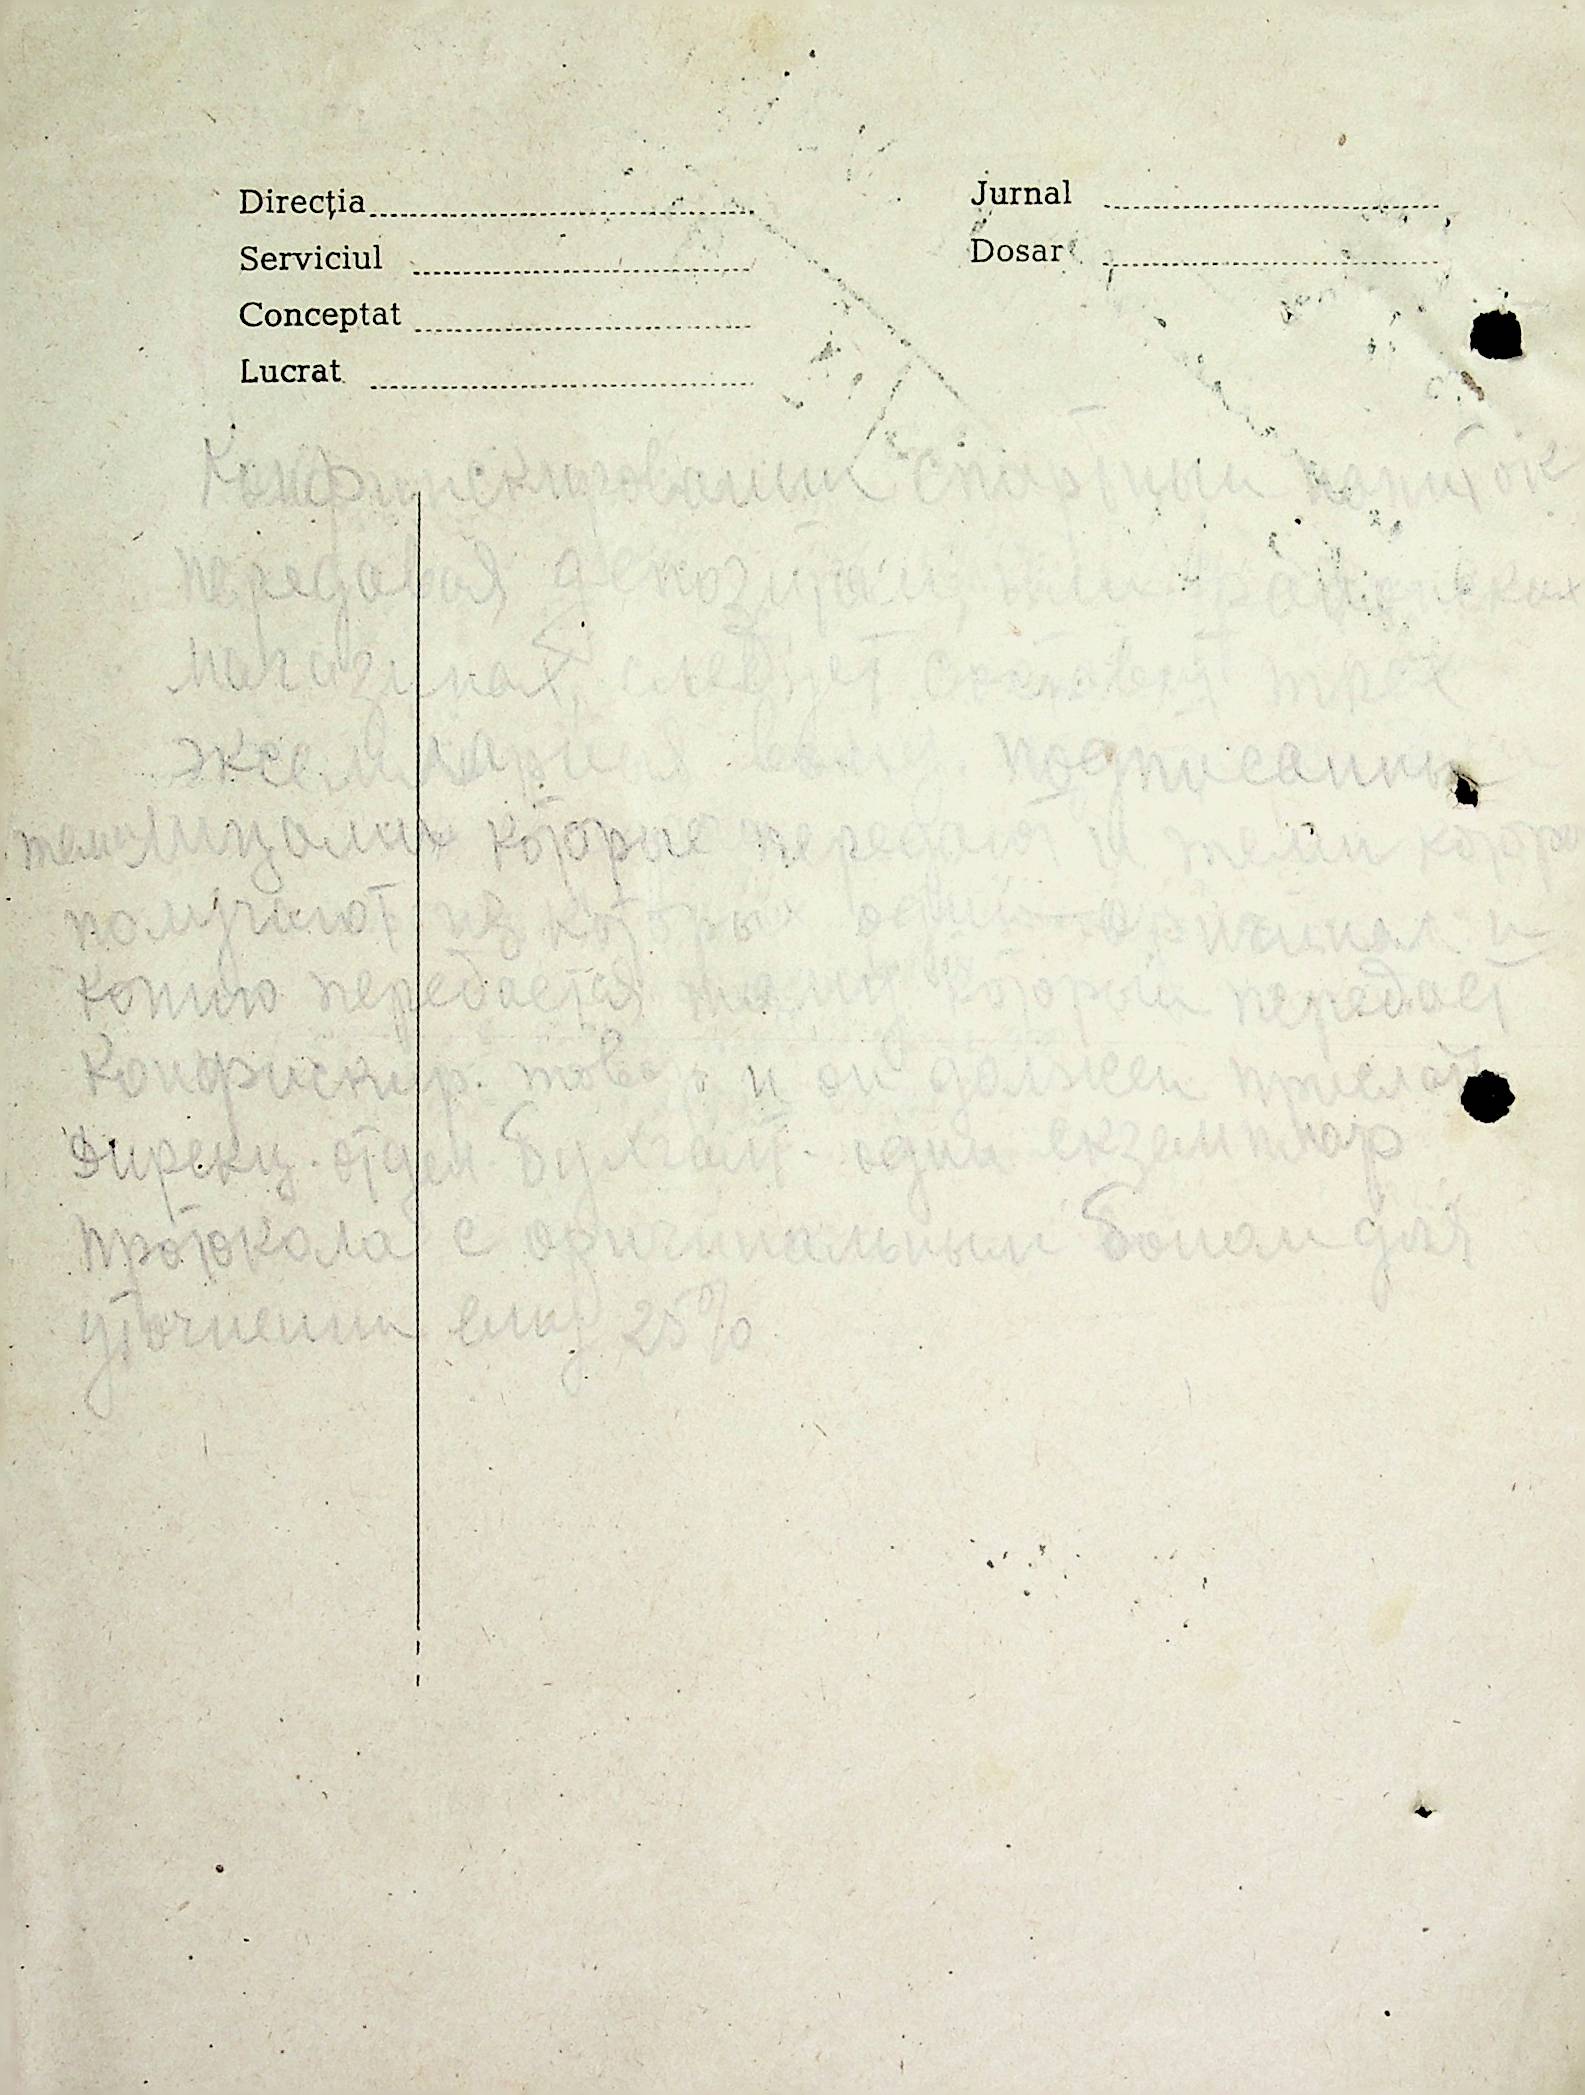 Direcția
Serviciul
Conceptat
Lucrat
Jurnal
Dosar
Конфискировании спиртный напиток
передавая депозитам, или
магазинах, следует трех
подписанны
темилицами которые передают и теми которые
получают из которых один оригинал и
копию передается тому который передает
Конфискир. товар и он должен прислать
Дирекц. отдел. булгалт. один екземпляр
протокола с оригинальным боном для
уточнении ему 25%